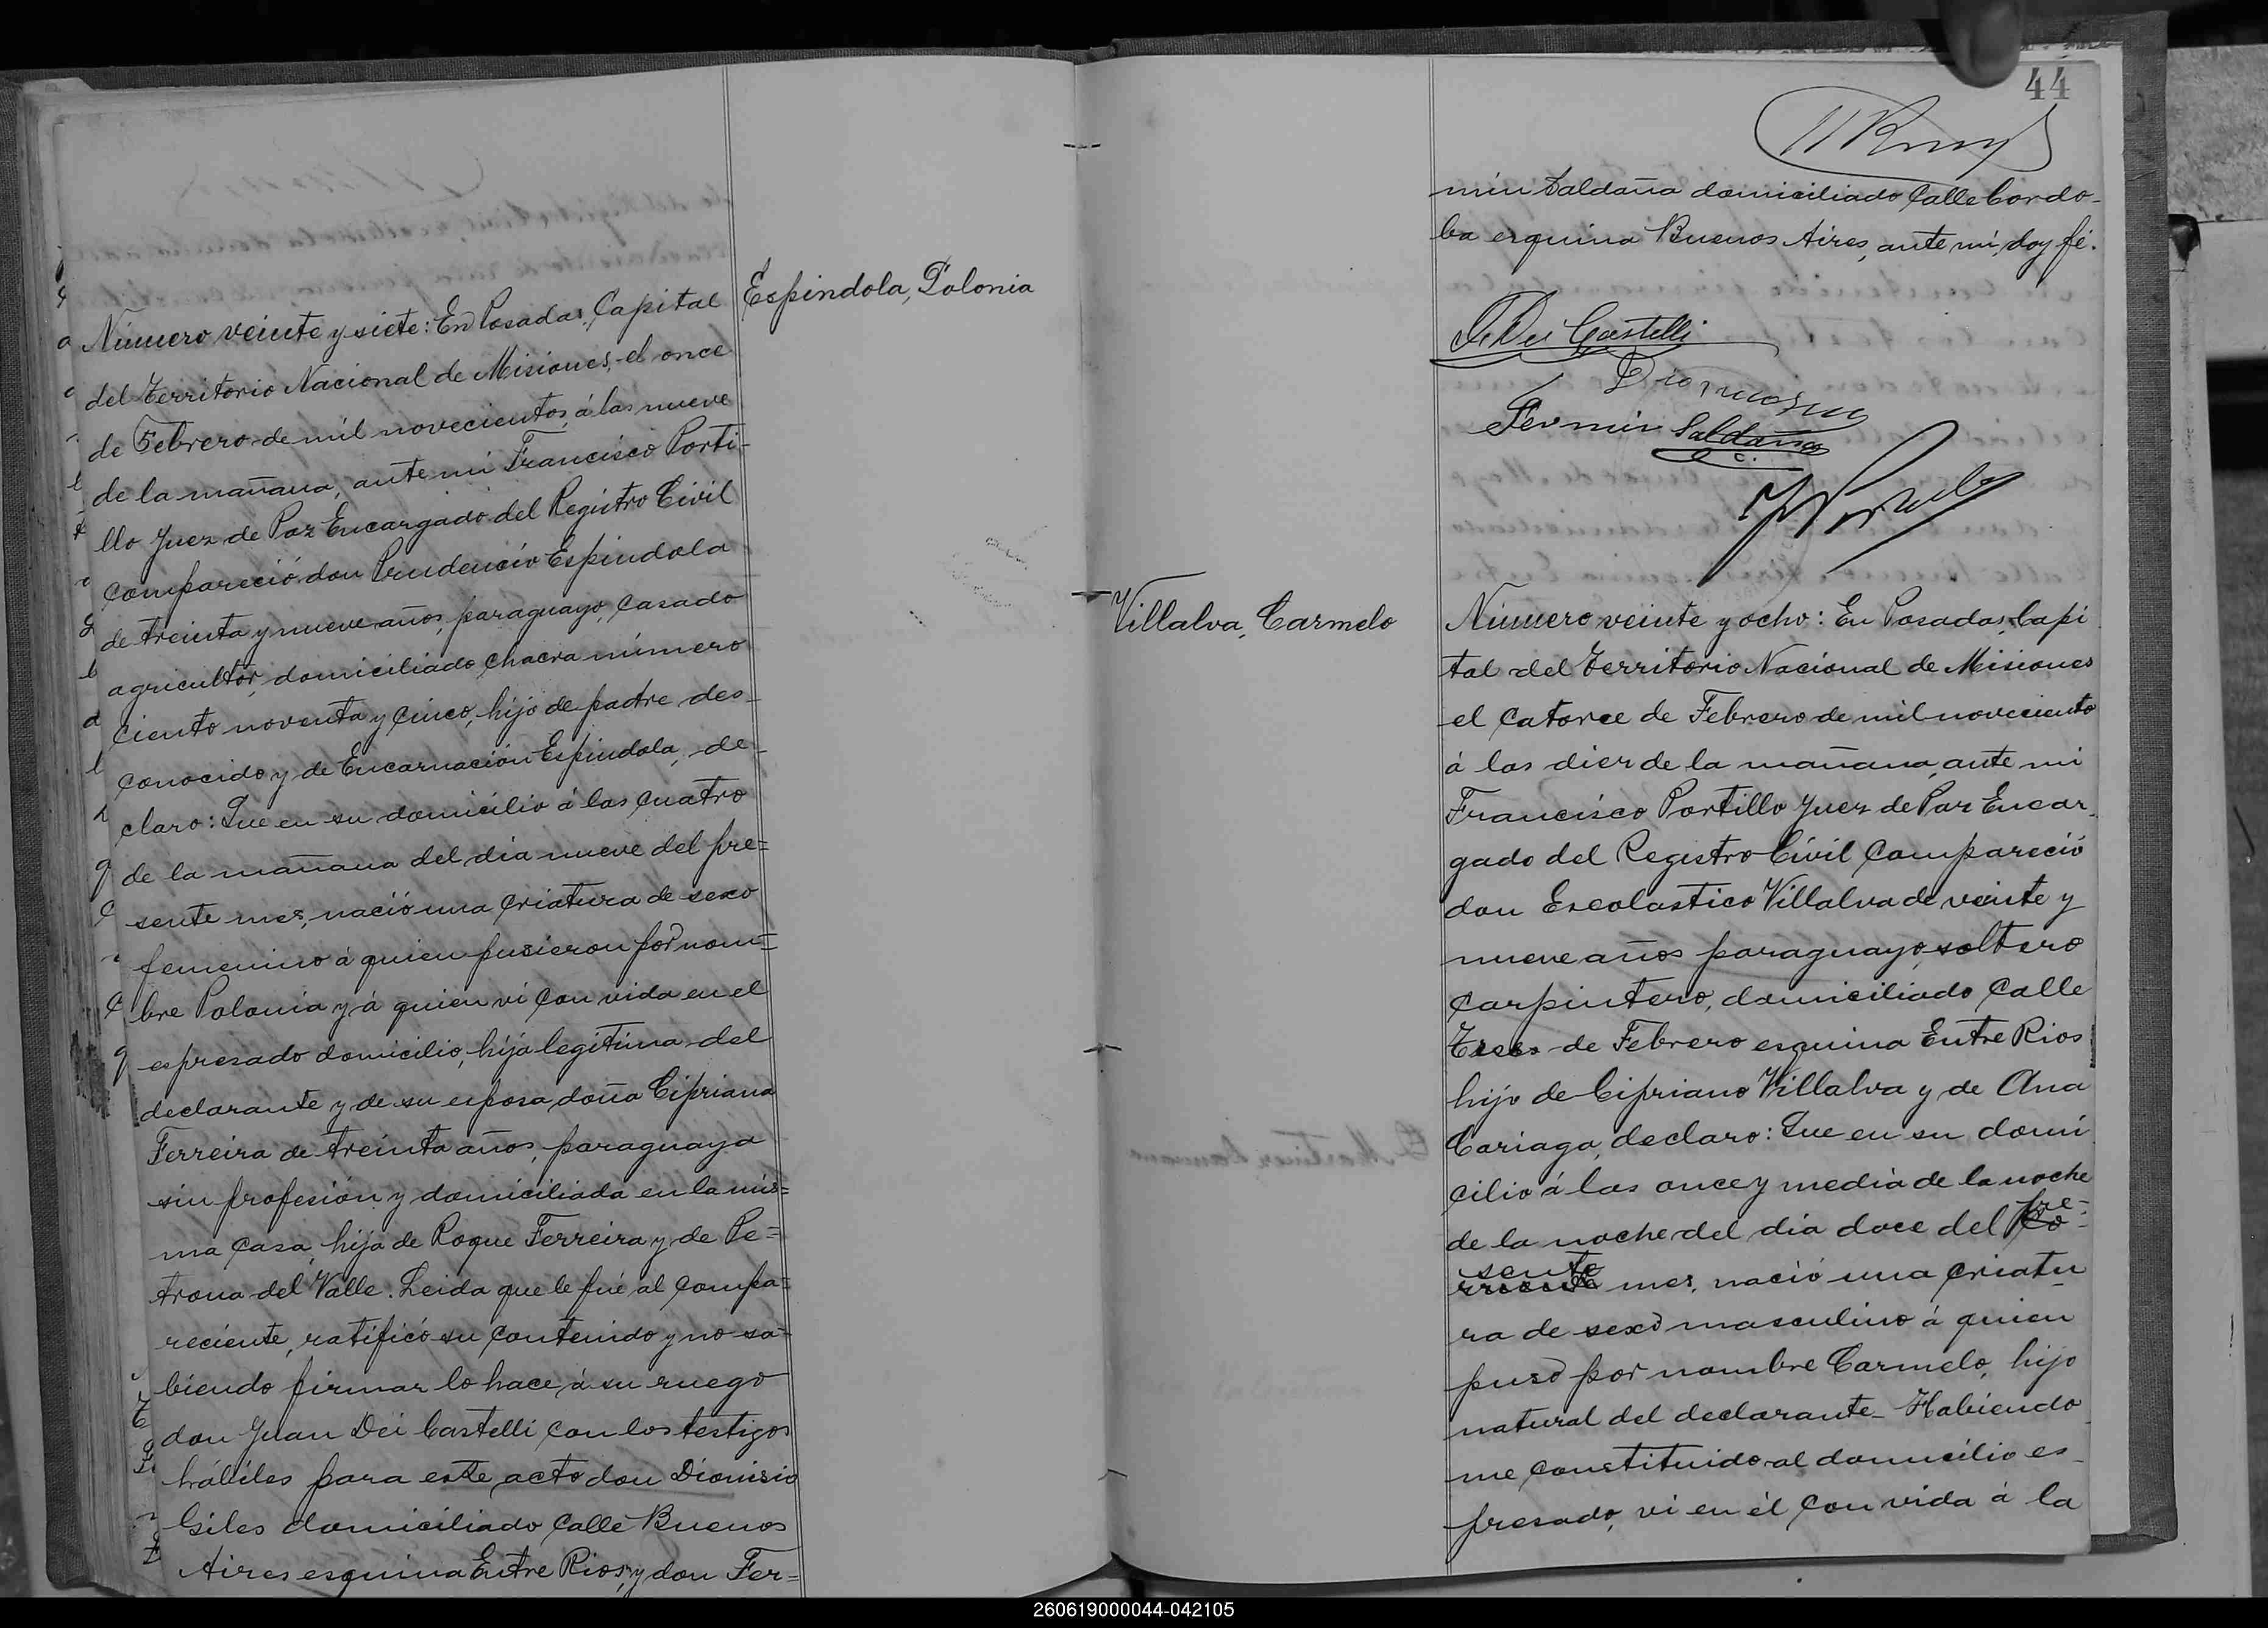 Espindola, Polonia
Número veinte y siete: En Posadas, Capital
del Territorio Nacional de Misiones, el once
de Febrero de mil novecientos, á las nueve
de la mañana, ante mi Francisco Porti-
llo Juez de Paz Encargado del Registro Civil
compareció don Prudencio Espindola
de treinta y nueve años, paraguayo, casado
agricultor, domiciliado chacra número
ciento noventa y cinco, hijo de padre des-
conocido y de Encarnación Espindola, de-
claro: Que en su domicilio á las cuatro
de la mañana del dia nueve del pre=
sente mes, nació una criatura de sexo
femenino á quien pusieron por nom=
bre Polonia y á quien vi con vida en el
espresado domicilio, hija legitima del
declarante y de su esposa doña Cipriana
Ferreira de treinta años, paraguaya
sin profesión y domiciliada en la mis=
ma casa, hija de Roque Ferreira y de Pe=
trona del Valle. Leida que le fué al compa=
reciente, ratificó su contenido y no sa=
biendo firmar lo hace á su ruego
don Juan Dei Castelli con los testigos
hábiles para este acto don Dionisio
Giles domiciliado calle Buenos
Aires esquina Entre Rios, y don Fer=
44
min Saldaña domiciliado Calle Cordo-
ba esquina Buenos Aires, ante mi, doy fé.
J. Dei Castelli
Fermin Saldaña
Villalva, Carmelo
Número veinte y ocho: En Posadas, Capi
tal del Territorio Nacional de Misiones
el catorce de Febrero de mil novecientos
á las diez de la mañana, ante mi
Francisco Portillo Juez de Paz Encar-
gado del Registro Civil compareció
don Escolastico Villalva de veinte y
nueve años paraguayo, soltero
carpintero, domiciliado calle
Tres de Febrero esquina Entre Rios
hijo de Cipriano Villalva y de Ana
Cariaga, declaro: Que en su domi
cilio á las once y media de la noche
de la noche del dia doce del pre-
sente mes, nació una criatu
ra de sexo masculino á quien
puso por nombre Carmelo, hijo
natural del declarante. Habiendo
me constituido al domicilio es-
presado, vi en él con vida á la
260619000044-042105